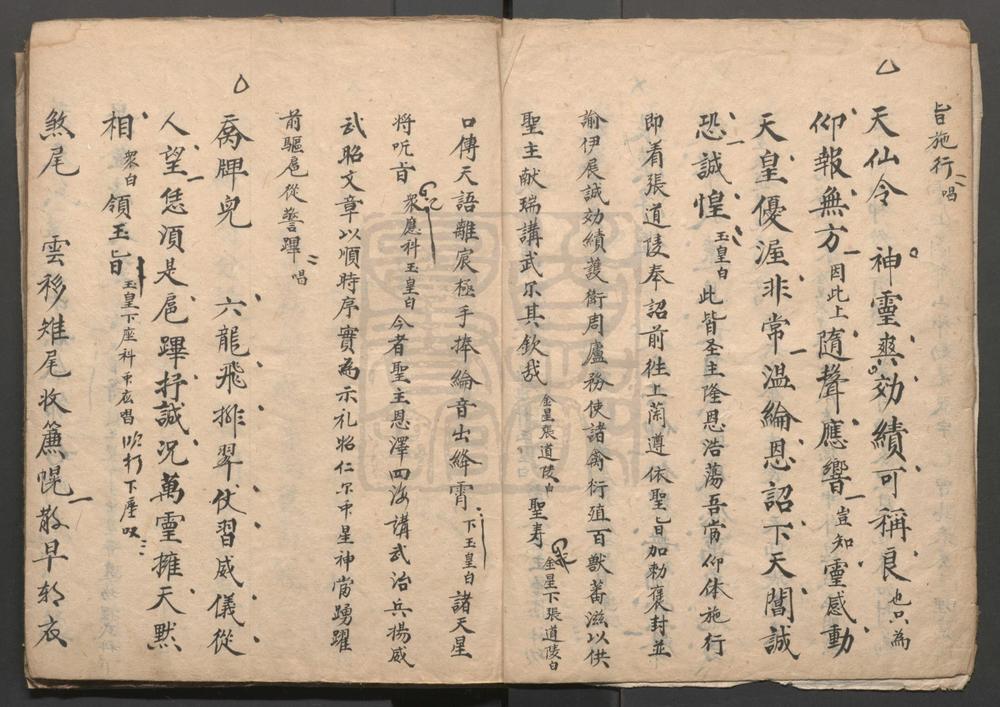 旨施行唱
天仙令　神靈爽効績可稱良也只為
仰報無方因此上隨聲應響豈知靈感動
天皇優渥非常溫綸恩詔下天閶誠
恐誠惶玉皇白此皆圣主隆恩浩蕩吾當仰体施行
即着張道陵奉詔前往上蘭遵依聖旨加勅褒封並
諭伊展誠効績護衛周廬務使諸禽衍殖百獸蕃滋以供
聖主献瑞講武尔其欽哉金星張道陵白聖寿金星下張道陵白
口傳天語離宸極手捧綸音出絳霄下玉皇白諸天星
將听旨眾應科玉皇白今者聖主恩澤四海講武治兵揚威
武昭文章以順時序實為示礼昭仁尔中星神當踴躍
前驅扈從警蹕唱
喬牌兒　六龍飛排翠仗習威儀從
人望恁須是扈蹕抒誠況萬靈擁天默
相眾白領玉旨玉皇下座科中衣唱吹打下座叹
煞尾　雲移雉尾收簾幌散早朝衣